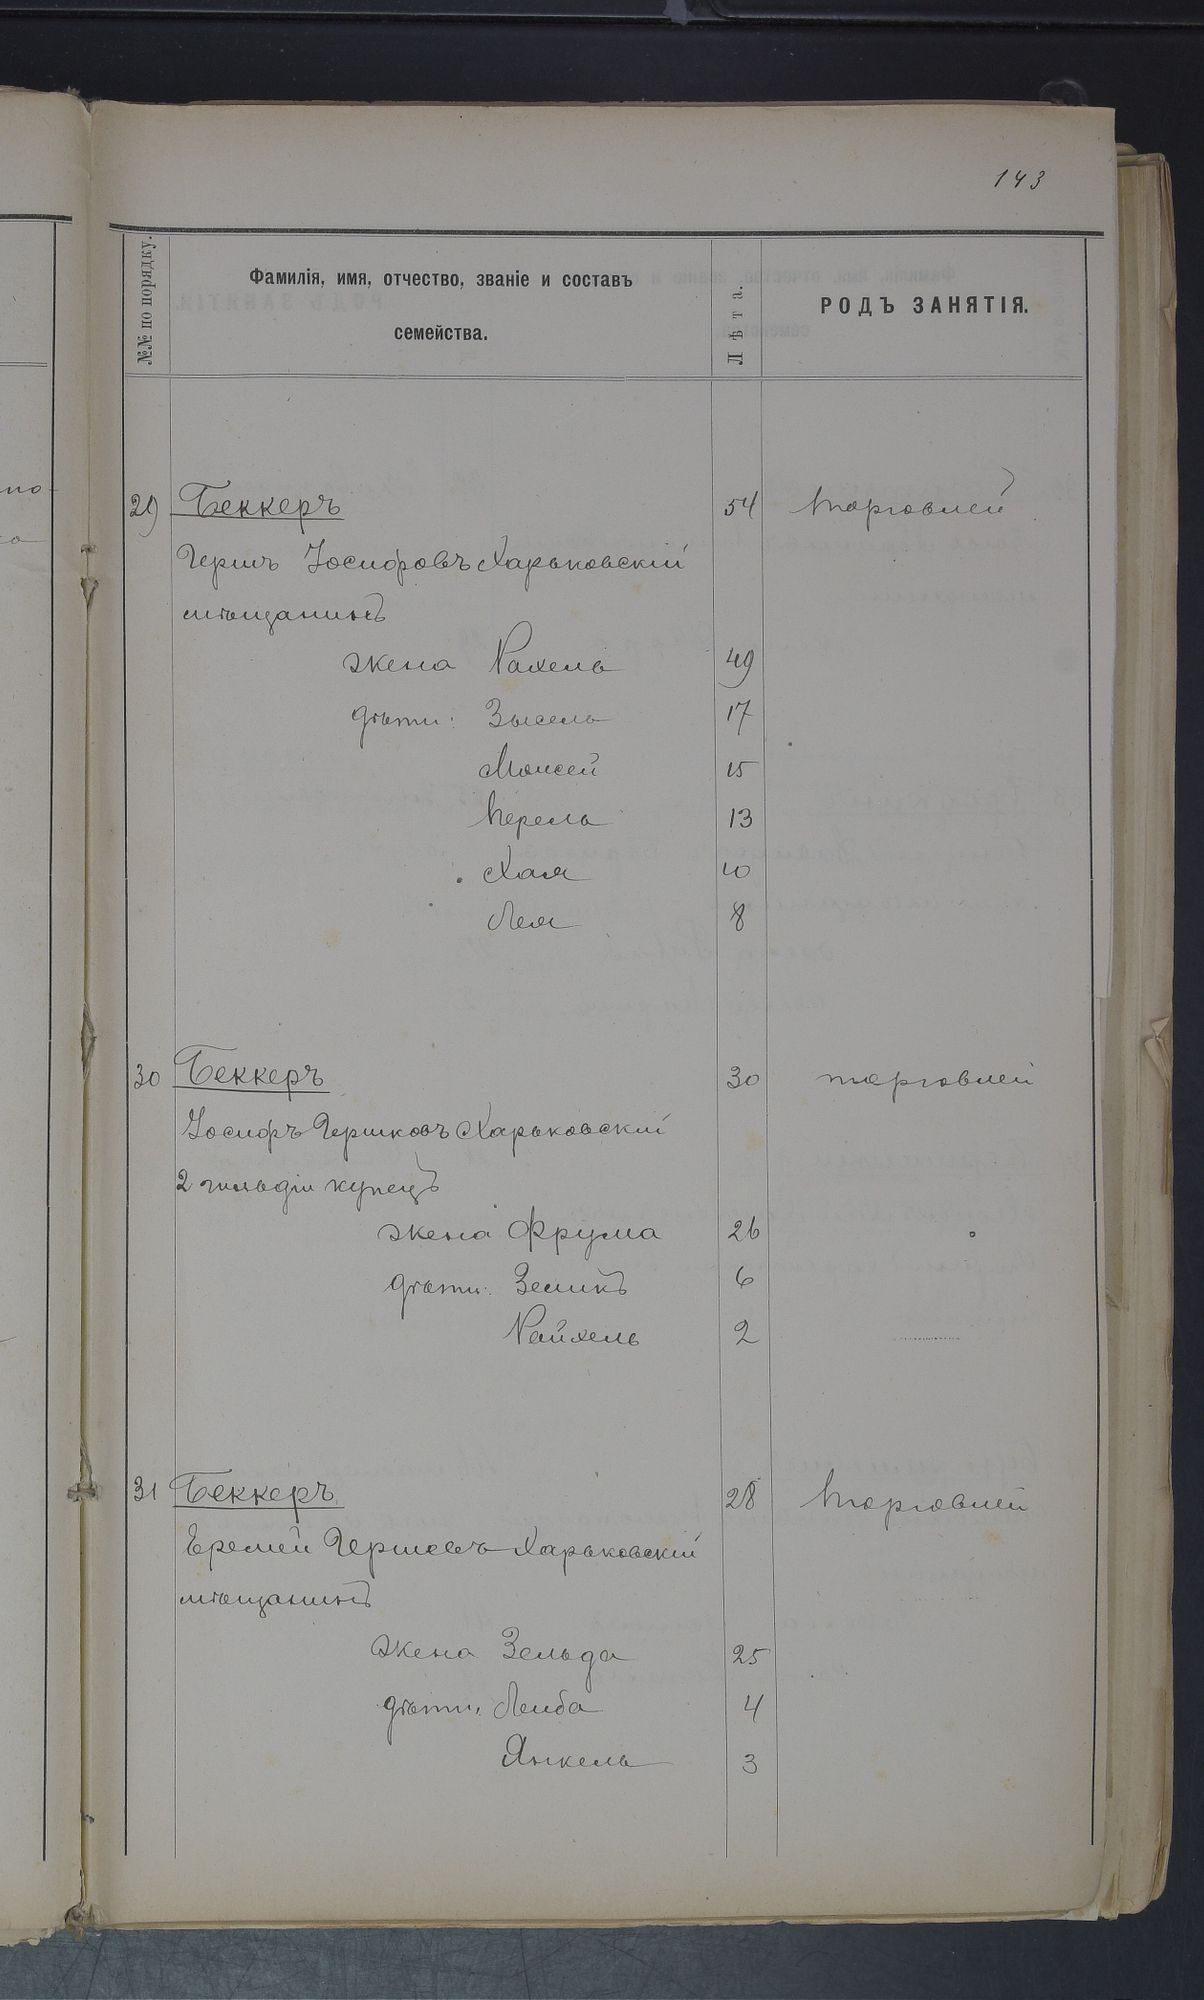 143
№№ по порядку.
Фамилія, имя, отчество, званіе и составъ
семейства.
Лѣта.
РОДЪ ЗАНЯТІЯ.
29 Беккеръ 54 торговлей
Гершъ Іосифовъ Харьковскій
мѣщанинъ
жена Рахель 49
дѣти: Зысель 17
Моисей 15
Перель 13
Хая 10
Лея 8
30 Беккеръ 30 торговлей
Іосифъ Гершковъ Харьковскій
2 гильдіи купецъ
жена Фрума 26
дѣти: Зеликъ 6
Рейхель 2
31 Беккеръ 28 торговлей
Еремей Гершовъ Харьковскій
мѣщанинъ
жена Зельда 25
дѣти: Лейба 4
Янкель 3